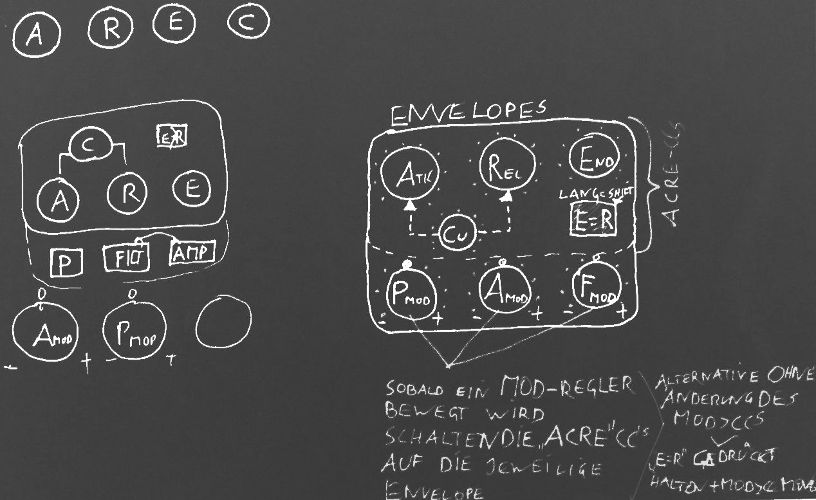 A R E C
C E=R
A R E
P FILT AMP
A MOD P MOD
- + - +
ENVELOPES
ATK REL END
LANG=SHIFT
CU E=R
ACRE-CCs
P MOD A MOD F MOD
- + - + - +
SOBALD EIN MOD-REGLER
BEWEGT WIRD
SCHALTEN DIE „ACRE" CC's
AUF DIE JEWEILIGE
ENVELOPE
ALTERNATIVE OHNE
ÄNDERUNG DES
MOD>CCS
„E=R" GEDRÜCKT
HALTEN + MOD>CC